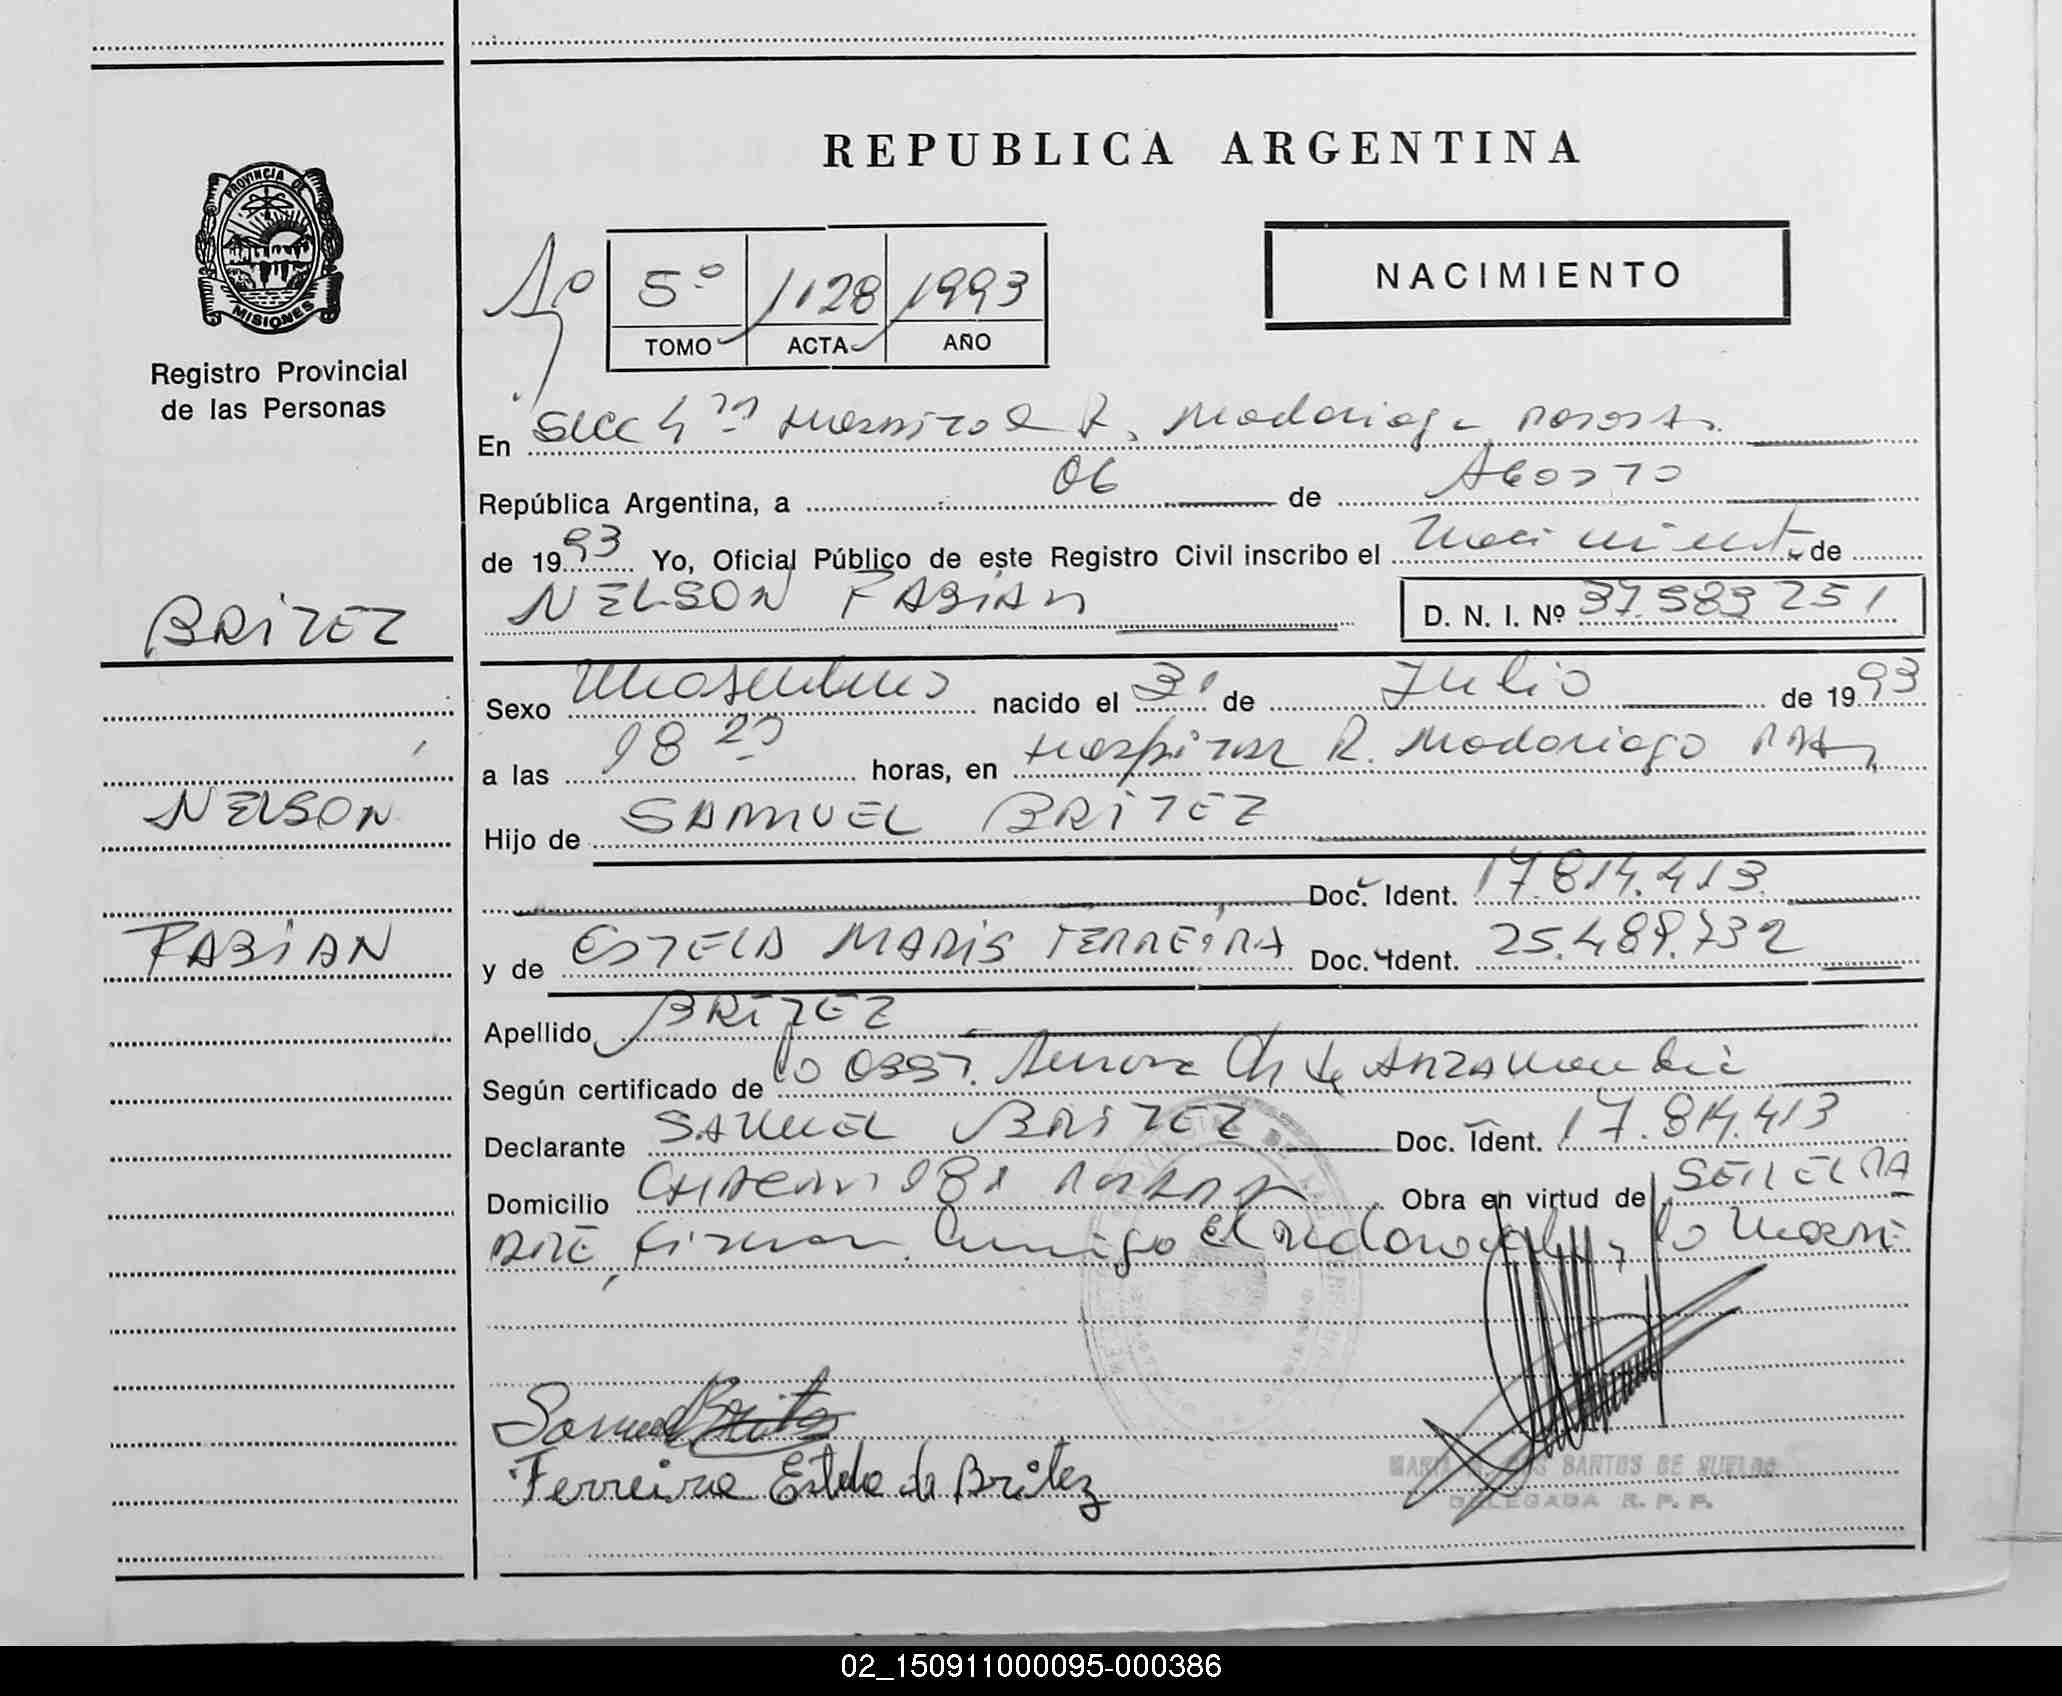 REPUBLICA ARGENTINA
PROVINCIA DE
MISIONES
Registro Provincial
de las Personas
5º 1128 1993
TOMO ACTA AÑO
NACIMIENTO
En Secc 4ª Hospital R. Madariaga Posadas
República Argentina, a 06 de Agosto
de 1993 Yo, Oficial Público de este Registro Civil inscribo el Nacimiento de
NELSON FABIAN D. N. I. Nº 37.583.251
BRITEZ
NELSON
FABIAN
Sexo Masculino nacido el 31 de Julio de 1993
a las 18 horas, en Hospital R. Madariaga
Hijo de SAMUEL BRITEZ
Doc. Ident. 17.814.413
y de ESTELA MARIS FERREIRA Doc. Ident. 25.489.732
Apellido BRITEZ
Según certificado de la Obst. Aurora Ch de
Declarante SAMUEL BRITEZ Doc. Ident. 17.814.413
Domicilio 181 Obra en virtud de
PRTE, firman conmigo el declarante y la Madre
Samuel Britez
Ferreira Estela de Britez
SANTOS DE
DELEGADA R. P. P.
02_150911000095-000386